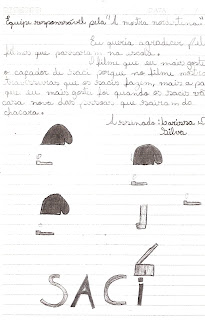 Equipe responsável pela "A mostra nossa turma"
Eu queria agradecer pelos
filmes que passaram na escola.
O filme que eu mais gostei
o caçador de saci porque no filme mostra
travessuras que os sacis fazem mais a parte
que eu mais gostei foi quando os sacis vão
casa nova das pessoas que saíram da
chacara.
Assinado: Larissa
Silva
SACÍ